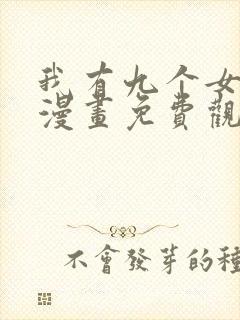 我有九个女
漫畫免費觀
不會發芽的種